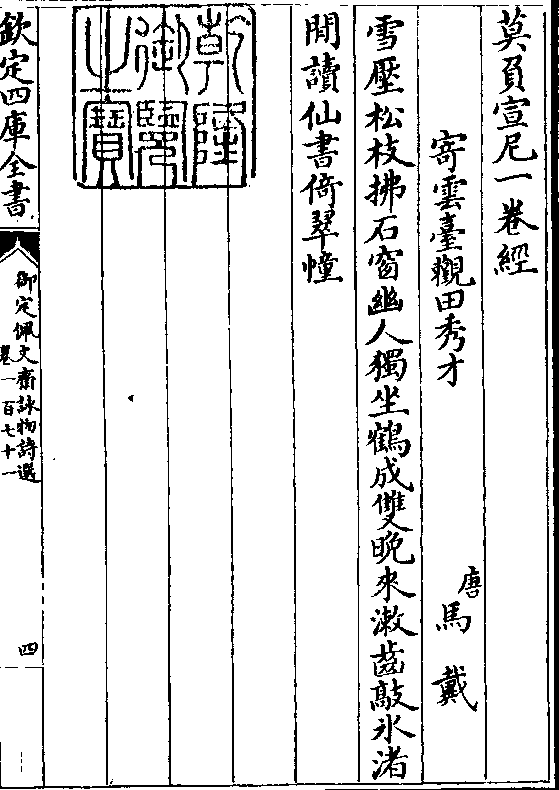 莫負宣尼一卷經
寄雲臺觀田秀才
唐馬戴
雪壓松枝拂石窗幽人獨坐鶴成雙晚來漱齒敲氷渚
閒讀仙書倚翠幢
乾隆御覽之寶
欽定四庫全書
御定佩文齋詠物詩選
卷一百七十一
四